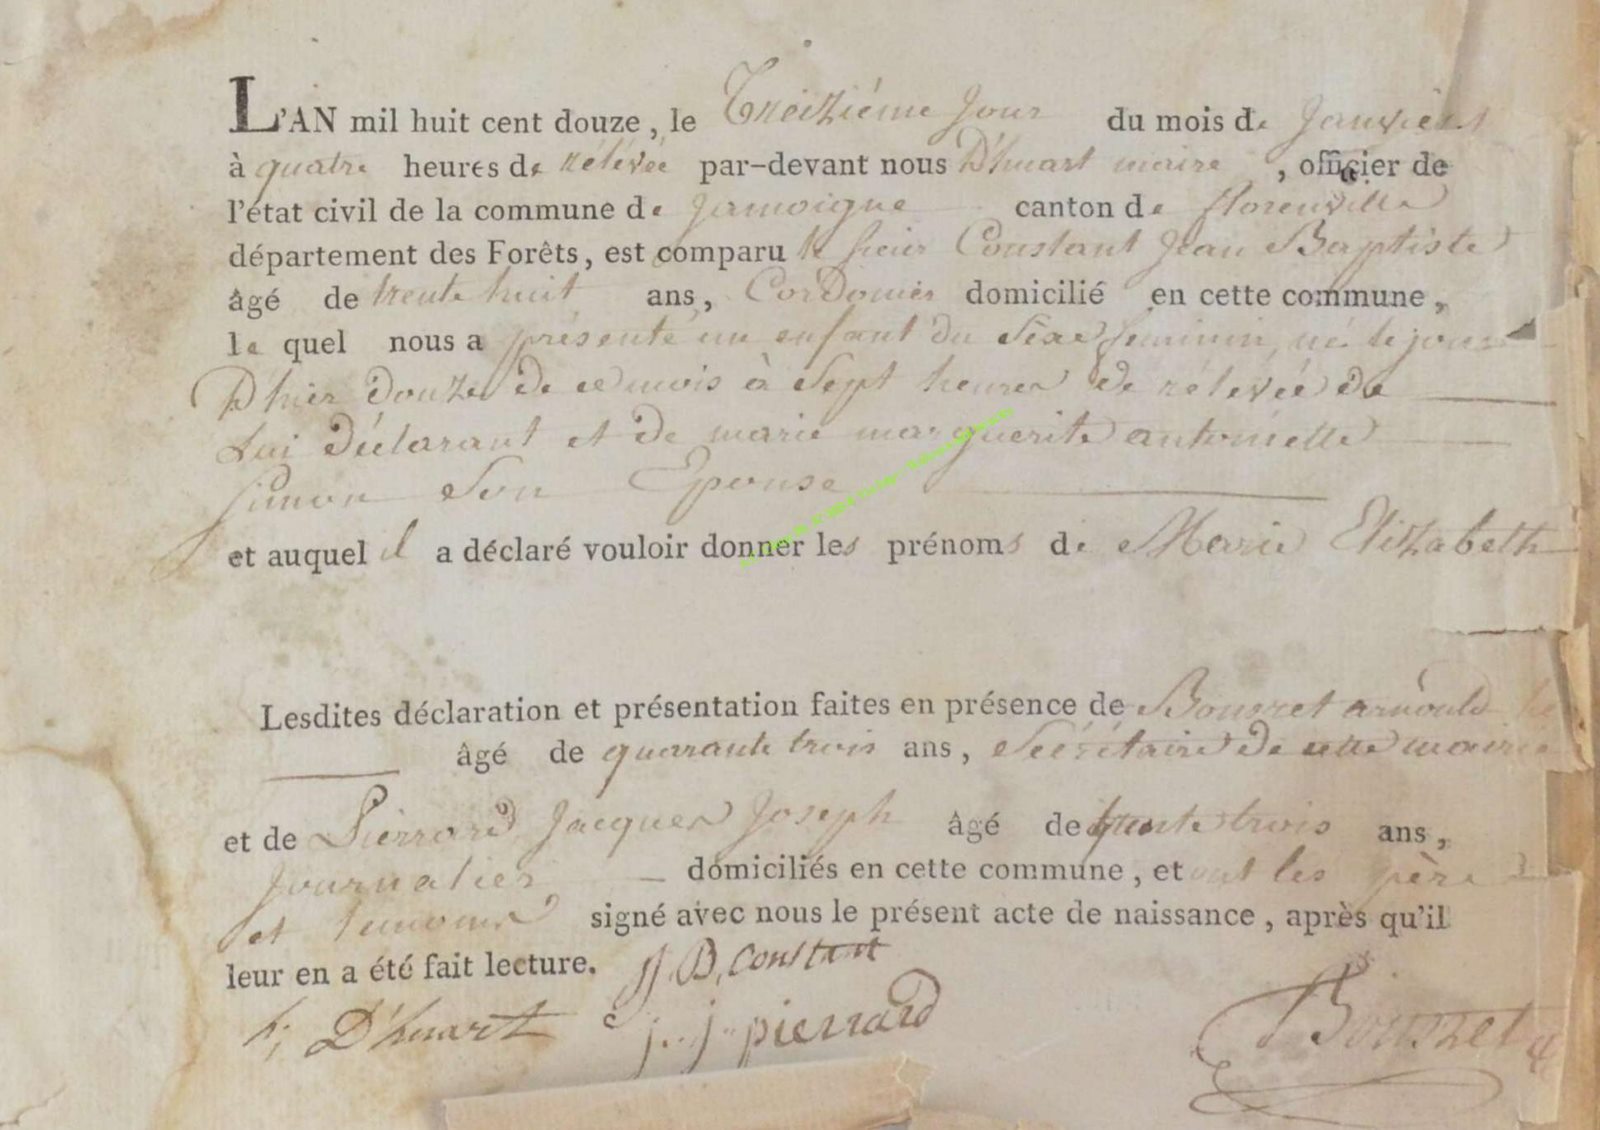 L'AN mil huit cent douze, le Treiziéme Jour du mois de Janvier
à quatre heures de rélévée par-devant nous D'huart maire, officier de
l'état civil de la commune de Jamoigne canton de florenville
département des Forêts, est comparu le sieur Constant Jean Baptiste
âgé de trente huit ans, Cordonier domicilié en cette commune,
le quel nous a présenté un enfant du Sexe feminin, né le jour
D'hier douze de ce mois à Sept heures de rélevée de
Lui déclarant et de marie marguerite antoinette
Simon Son Epouse
et auquel il a déclaré vouloir donner les prénoms de Marie Elizabeth
Lesdites déclaration et présentation faites en présence de Bourzet arnould
âgé de quarante trois ans, Sécrétaire de cette mairie
et de Pierrard Jacques Joseph âgé de trente trois ans,
Journalier domiciliés en cette commune, et ont les père
et temoins signé avec nous le présent acte de naissance, après qu'il
leur en a été fait lecture. J. B. Constant
D'huart j. j. pierrard Bourzet